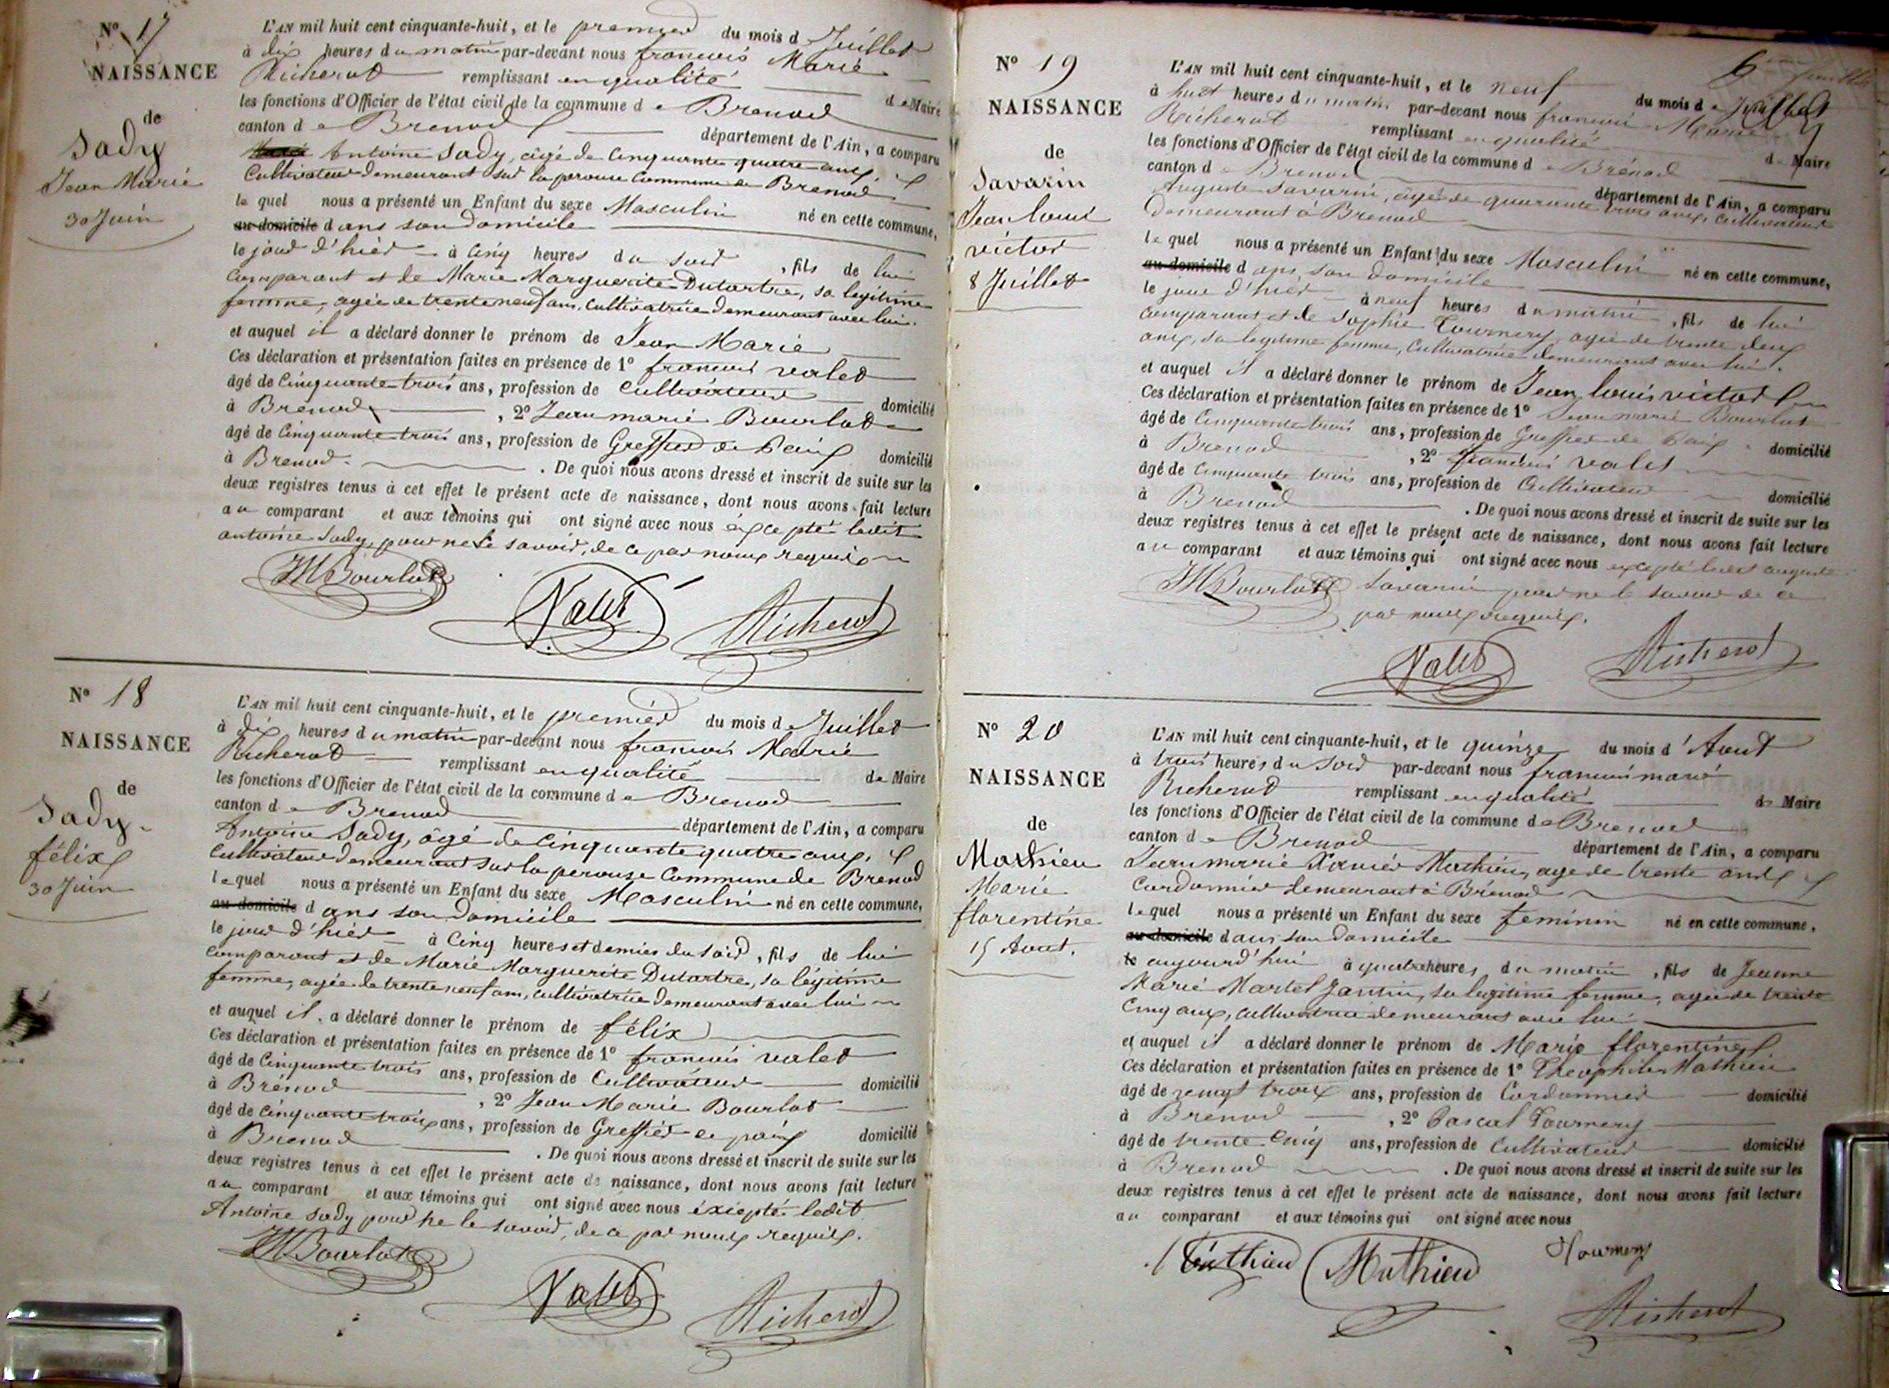 N° 17
NAISSANCE
de
Sady
Jean Marie
30 Juin
L'AN mil huit cent cinquante-huit, et le premier du mois d Juillet
à dix heures du matin par-devant nous francois Marie
Richerot remplissant en qualité de Maire
les fonctions d'Officier de l'état civil de la commune de Brenod
canton de Brenod département de l'Ain, a comparu
Antoine Sady, agé de Cinquante quatre ans,
Cultivateur demeurant sur la perouse Commune de Brenod
le quel nous a présenté un Enfant du sexe Masculin né en cette commune,
au domicile dans son domicile
le jour d'hier à Cinq heures du soir, fils de lui
comparant et de Marie Marguerite Dutartre, sa légitime
femme, agée de trente neuf ans, Cultivatrice demeurant avec lui.
et auquel il a déclaré donner le prénom de Jean Marie
Ces déclaration et présentation faites en présence de 1° francois valet
âgé de Cinquante trois ans, profession de Cultivateur domicilié
à Brénod, 2° Jean marie Bourlot
âgé de Cinquante trois ans, profession de Greffier de Paix domicilié
à Brenod. De quoi nous avons dressé et inscrit de suite sur les
deux registres tenus à cet effet le présent acte de naissance, dont nous avons fait lecture
au comparant et aux témoins qui ont signé avec nous excepté ledit
antoine Sady, pour ne le savoir, de ce par nous requis
JM Bourlot Valet Richerot
N° 18
NAISSANCE
de
Sady
félix
30 Juin
L'AN mil huit cent cinquante-huit, et le premier du mois de Juillet
à dix heures du matin par-devant nous francois Marie
Richerot remplissant en qualité de Maire
les fonctions d'Officier de l'état civil de la commune de Brenod
canton de Brenod département de l'Ain, a comparu
Antoine Sady, âgé de Cinquante quatre ans,
Cultivateur demeurant sur la perouse Commune de Brenod
lequel nous a présenté un Enfant du sexe Masculin né en cette commune,
au domicile dans son domicile
le jour d'hier à Cinq heures et demies du soir, fils de lui
comparant et de Marie Marguerite Dutartre, sa légitime
femme, agée de trente neuf ans, cultivatrice demeurant avec lui
et auquel il a déclaré donner le prénom de félix
Ces déclaration et présentation faites en présence de 1° francois valet
âgé de Cinquante trois ans, profession de Cultivateur domicilié
à Brénod, 2° Jean Marie Bourlot
âgé de Cinquante trois ans, profession de Greffier de paix domicilié
à Brenod. De quoi nous avons dressé et inscrit de suite sur les
deux registres tenus à cet effet le présent acte de naissance, dont nous avons fait lecture
au comparant et aux témoins qui ont signé avec nous éxcepté ledit
Antoine Sady pour ne le savoir, de ce par nous requis.
JM Bourlot Valet Richerot
6
N° 19
NAISSANCE
de
Savarin
Jean louis
victor
8 Juillet
L'AN mil huit cent cinquante-huit, et le neuf du mois de Juillet
à huit heures du matin par-devant nous francois Marie
Richerot remplissant en qualité de Maire
les fonctions d'Officier de l'état civil de la commune de Brénod
canton de Brenod département de l'Ain, a comparu
Auguste Savarin, agé de quarante trois ans, cultivateur
demeurant à Brenod
lequel nous a présenté un Enfant du sexe Masculin né en cette commune,
au domicile dans son domicile
le jour d'hier à neuf heures du matin, fils de lui
comparant et de Sophie Tournery, agée de trente deux
ans, sa légitime femme, Cultivatrice demeurant avec lui.
et auquel il a déclaré donner le prénom de Jean louis victor
Ces déclaration et présentation faites en présence de 1° Jean marie Bourlot
âgé de Cinquante trois ans, profession de Greffier de Paix domicilié
à Brenod, 2° francois valet
âgé de Cinquante trois ans, profession de Cultivateur domicilié
à Brenod. De quoi nous avons dressé et inscrit de suite sur les
deux registres tenus à cet effet le présent acte de naissance, dont nous avons fait lecture
au comparant et aux témoins qui ont signé avec nous excepté ledit auguste
Savarin pour ne le savoir de ce
par nous requis.
JM Bourlot Valet Richerot
N° 20
NAISSANCE
de
Mathieu
Marie
florentine
15 Aout.
L'AN mil huit cent cinquante-huit, et le quinze du mois d'Aout
à trois heures du Soir par-devant nous francois marie
Richerot remplissant en qualité de Maire
les fonctions d'Officier de l'état civil de la commune de Brenod
canton de Brenod département de l'Ain, a comparu
Jean marie Xavier Mathieu, agé de trente ans
Cordonnier demeurant à Brénod
lequel nous a présenté un Enfant du sexe feminin né en cette commune,
au domicile dans son domicile
le aujourd'hui à quatre heures du matin, fils de Jeanne
Marie Martel Jantin, sa légitime femme, agée de trente
Cinq ans, cultivatrice demeurant avec lui
et auquel il a déclaré donner le prénom de Marie florentine
Ces déclaration et présentation faites en présence de 1° Théophile Mathieu
âgé de vingt trois ans, profession de Cordonnier domicilié
à Brenod, 2° Pascal Tournery
âgé de trente Cinq ans, profession de Cultivateur domicilié
à Brenod. De quoi nous avons dressé et inscrit de suite sur les
deux registres tenus à cet effet le présent acte de naissance, dont nous avons fait lecture
au comparant et aux témoins qui ont signé avec nous
Mathieu Mathieu Tournery
Richerot